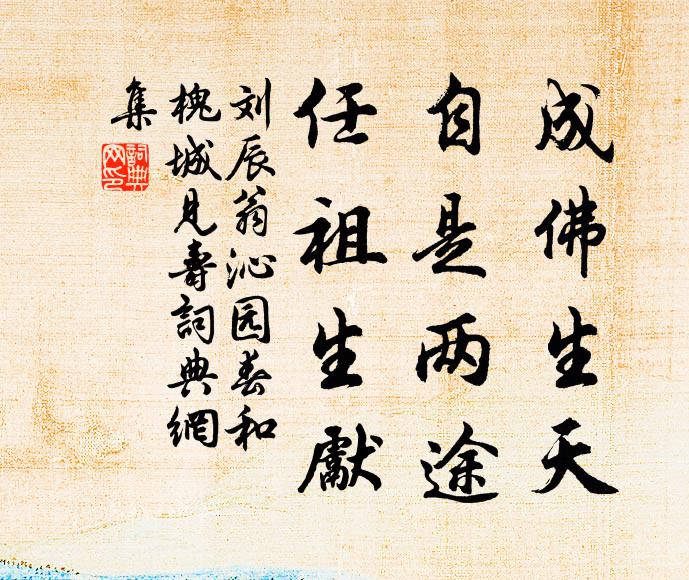 成佛生天
自是两途
任祖生獻
刘辰翁沁园春和
槐城见寿詞典網
集
詞典
网印